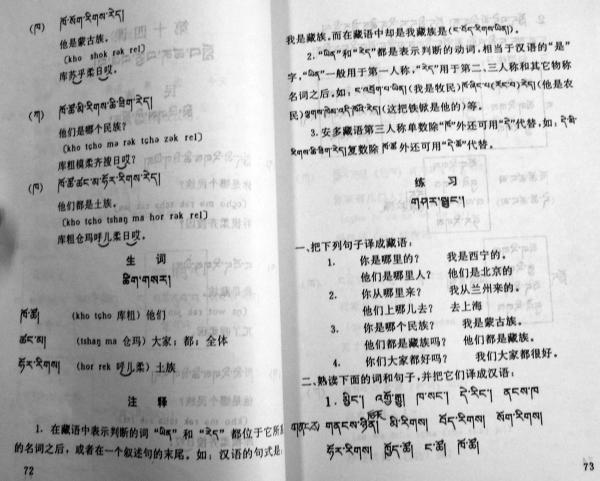 (ཁ) ཁོ་སོག་རིགས་རེད།
他是蒙古族。
(kho shok rək rel)
库苏乎柔日哎。
(ཀ) ཁོ་ཚོ་མི་རིགས་ཆི་ཟིག་རེད།
他们是哪个民族?
(kho tɕho mə rək tɕhə zək rel)
库粗模柔齐搜日哎?
(ཁ) ཁོ་ཚོ་ཚང་མ་ཧོར་རིགས་རེད།
他们都是土族。
(kho tɕho tshaŋ ma hor rək rel)
库粗仓玛呼儿柔日哎。
生 词
ཚིག་གསར།
ཁོ་ཚོ། (kho tɕho 库粗) 他们
ཚང་མ། (tshaŋ ma 仓玛) 大家;都;全体
ཧོར་རིགས། (hor rek 呼儿柔) 土族
注 释
1. 在藏语中表示判断的词 "ཡིན" 和 "རེད" 都位于它所
的名词之后,或者在一个叙述句的末尾。如:汉语的句式是:
72
我是藏族。而在藏语中却是我藏族是(ང་བོད་རིགས་ཡིན།)。
2. "ཡིན"和"རེད"都是表示判断的动词,相当于汉语的"是"
字,"ཡིན"一般用于第一人称,"རེད"用于第二、三人称和其它物称
名词之后。如: (我是牧民) (他是农
民) (这把铁锨是他的)等。
3. 安多藏语第三人称单数除"ཁོ"外还可用"དེ"代替,如:
复数除ཁོ་ཚོ外还可用"དེ་ཚོ"代替。
练 习
གཤར་སྦྱང་།
一、把下列句子译成藏语:
1. 你是哪里的? 我是西宁的。
他们是哪里人? 他们是北京的
2. 你从哪里来? 我从兰州来的。
他们上哪儿去? 去上海
3. 你是哪个民族? 我是蒙古族。
他们都是藏族吗? 他们都是藏族。
4. 你们大家都好吗? 我们大家都很好。
二、熟读下面的词和句子,并把它们译成汉语:
1. མིང་། འགྲོ་རྒྱུ། ཁ་སང་། དེ་རིང་། ནངས་ཁ
གནངས་ཉིན། མི་རིགས། བོད་རིགས། སོག་རིགས།
ཧོར་རིགས། ཁྱོད་ཚོ། ང་ཚོ། ཁོ་ཚོ།
73